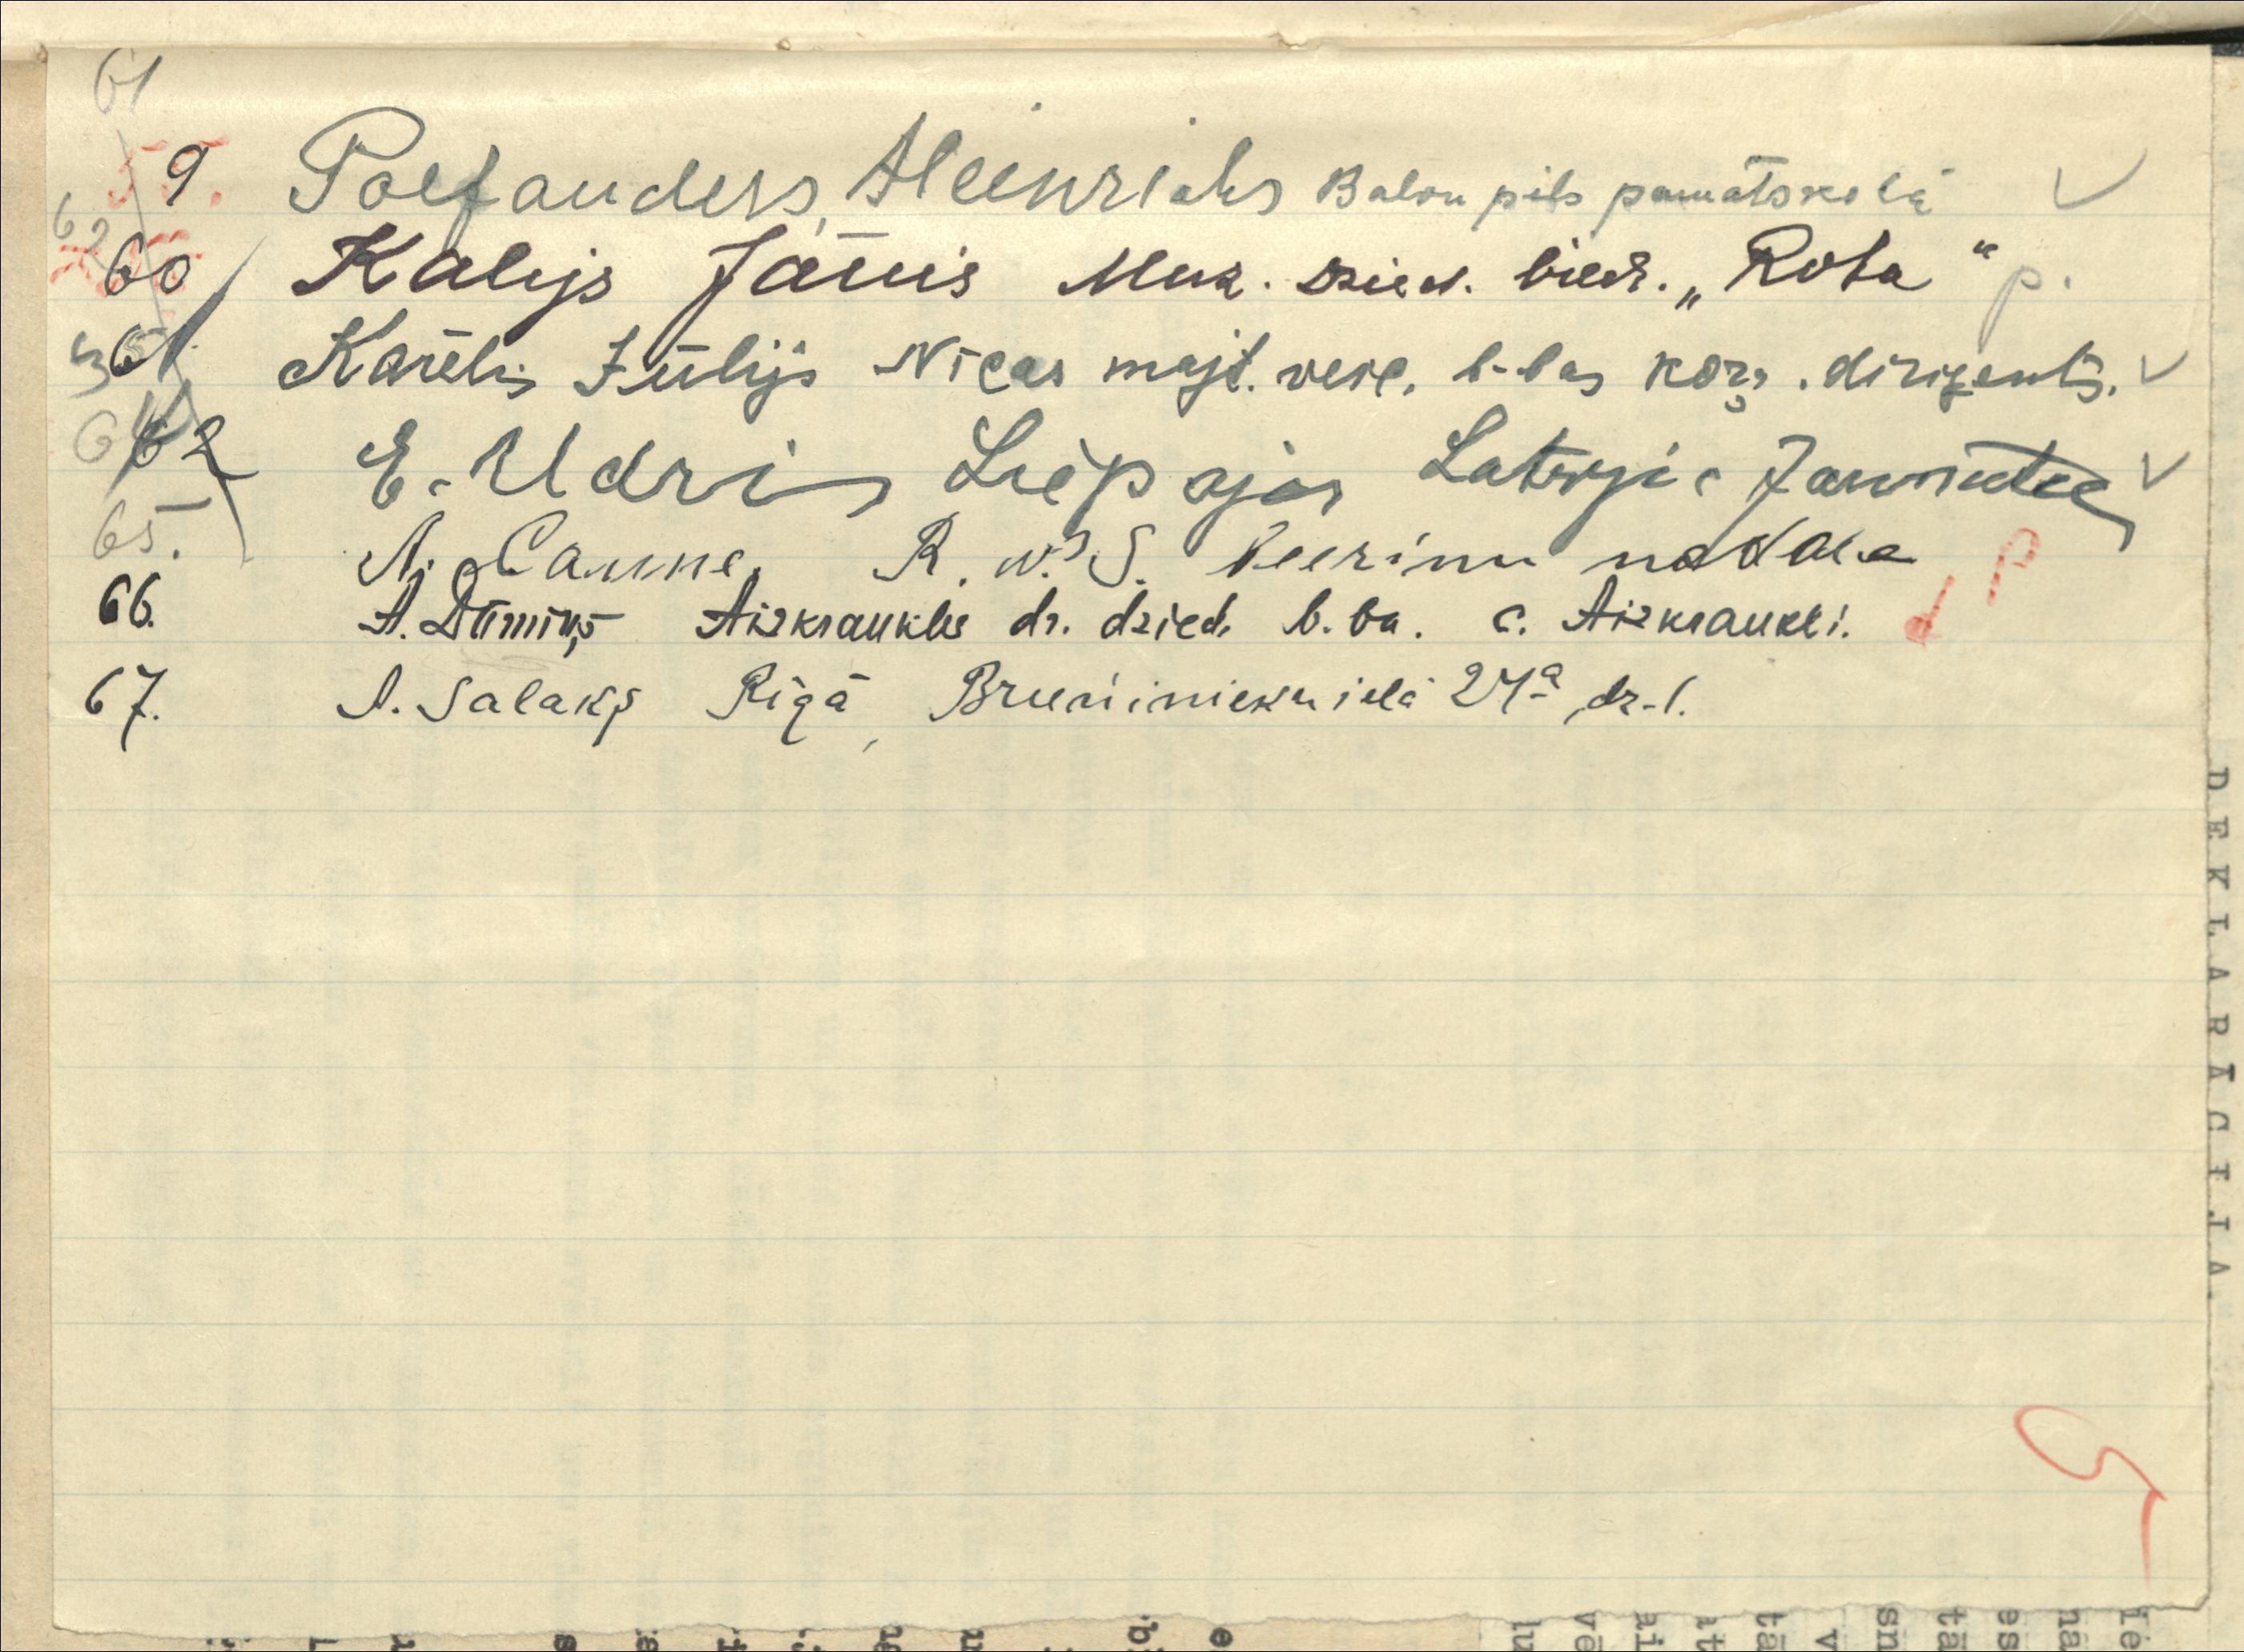 61
59. Polfanders, Heinrichs Baloņ pils pamatskolā
62
60 Kalējs Jānis Muz. Dzied. biedr. „Rota“ p.
61. Kārēlis Jūlijs Nīcas majt. veic. b-bas koŗa. diriģents.
64 62 E. Udris Liepājas Latvju Jaunatne
65. A. Caune. R. N. S. Veeriņu nodaļa
66. A. Dūmiņš Aizkraukles dr. dzied. b.ba. c. Aizkraukli.
67. A. Salaks Rīgā, Bruņinieku ielā 27a, dz-1.
DEKLARĀCIJA